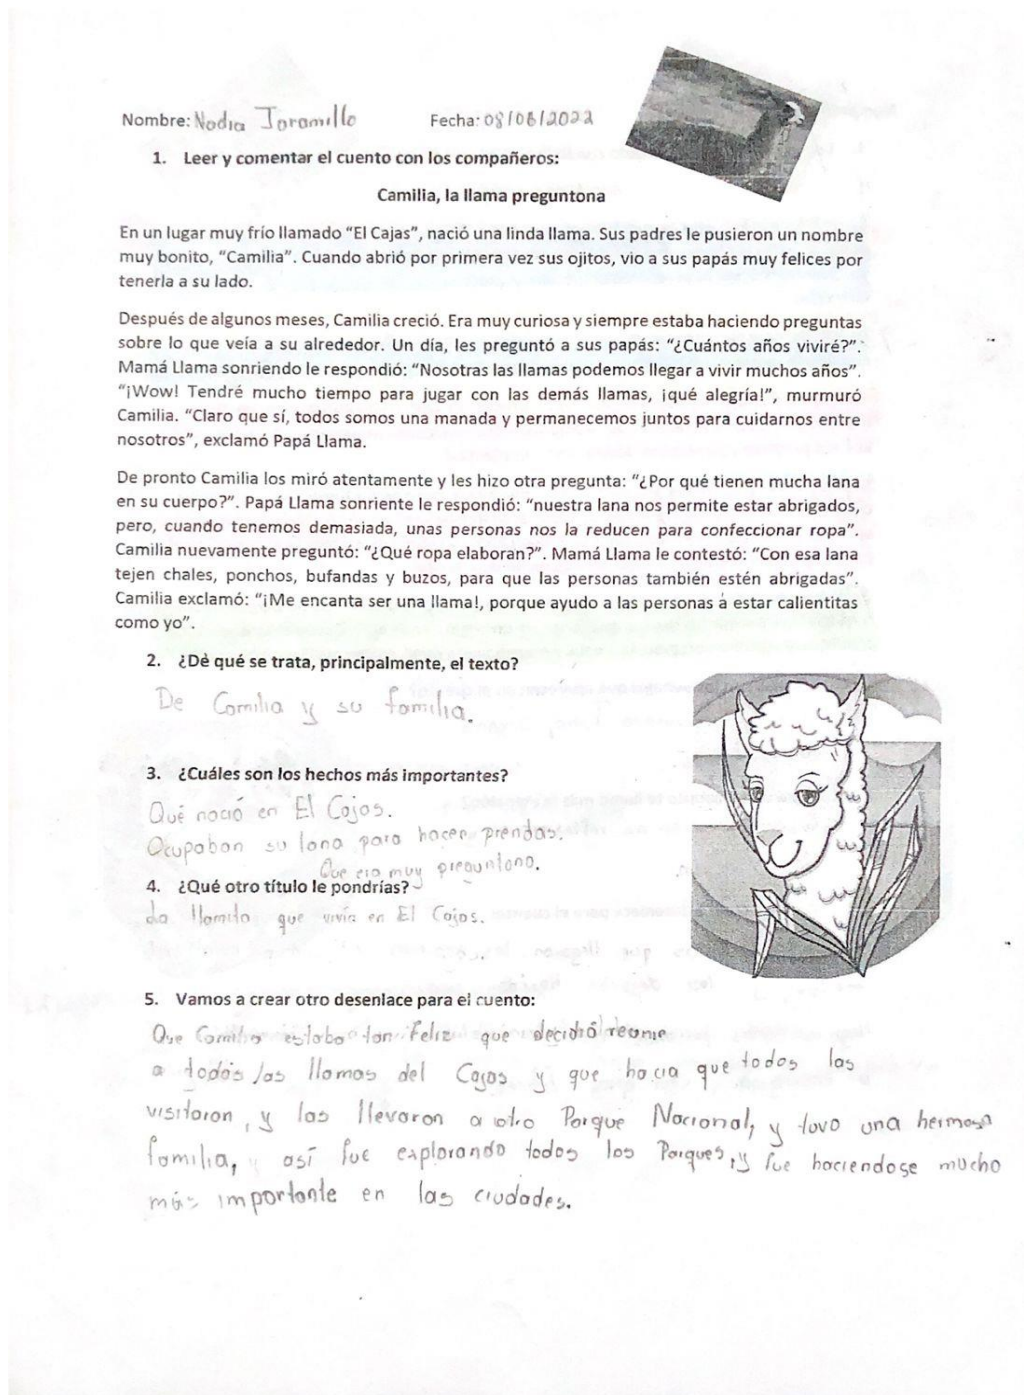 Nombre: Nadia Jaramillo Fecha: 08/06/2022
1. Leer y comentar el cuento con los compañeros:
Camilia, la llama preguntona
En un lugar muy frío llamado “El Cajas”, nació una linda llama. Sus padres le pusieron un nombre
muy bonito, “Camilia”. Cuando abrió por primera vez sus ojitos, vio a sus papás muy felices por
tenerla a su lado.
Después de algunos meses, Camilia creció. Era muy curiosa y siempre estaba haciendo preguntas
sobre lo que veía a su alrededor. Un día, les preguntó a sus papás: “¿Cuántos años viviré?”.
Mamá Llama sonriendo le respondió: “Nosotras las llamas podemos llegar a vivir muchos años”.
“¡Wow! Tendré mucho tiempo para jugar con las demás llamas, ¡qué alegría!”, murmuró
Camilia. “Claro que sí, todos somos una manada y permanecemos juntos para cuidarnos entre
nosotros”, exclamó Papá Llama.
De pronto Camilia los miró atentamente y les hizo otra pregunta: “¿Por qué tienen mucha lana
en su cuerpo?”. Papá Llama sonriente le respondió: “nuestra lana nos permite estar abrigados,
pero, cuando tenemos demasiada, unas personas nos la reducen para confeccionar ropa”.
Camilia nuevamente preguntó: “¿Qué ropa elaboran?”. Mamá Llama le contestó: “Con esa lana
tejen chales, ponchos, bufandas y buzos, para que las personas también estén abrigadas”.
Camilia exclamó: “¡Me encanta ser una llama!, porque ayudo a las personas a estar calientitas
como yo”.
2. ¿De qué se trata, principalmente, el texto?
De Camilia y su familia.
3. ¿Cuáles son los hechos más importantes?
Qué nació en El Cajas.
Ocupaban su lana para hacer prendas.
Que era muy preguntona.
4. ¿Qué otro título le pondrías?
La llamita que vivía en El Cajas.
5. Vamos a crear otro desenlace para el cuento:
Que Camilia estaba tan feliz que decidió reunir
a todos las llamas del Cajas y que hacia que todos las
visitaron, y las llevaron a otro Parque Nacional, y tuvo una hermosa
familia, y así fue explorando todos los Parques, y fue haciendose mucho
más importante en las ciudades.